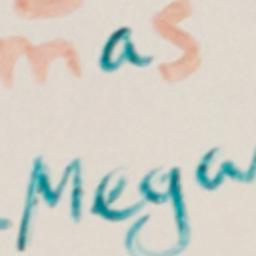 mas
-Mega